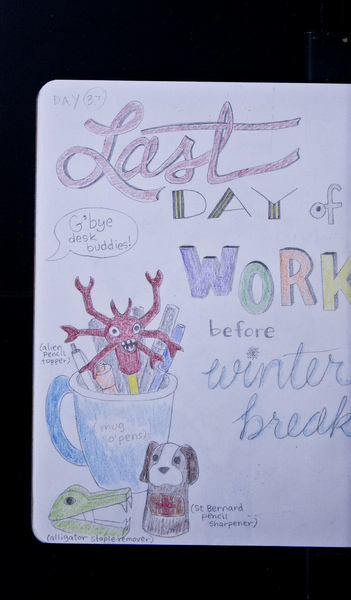 DAY 37
Last
DAY of
WORK
before
winter
break
G'bye
desk
buddies!
(alien
pencil
topper)
(mug
o'pens)
(St Bernard
pencil
sharpener)
(alligator staple remover)